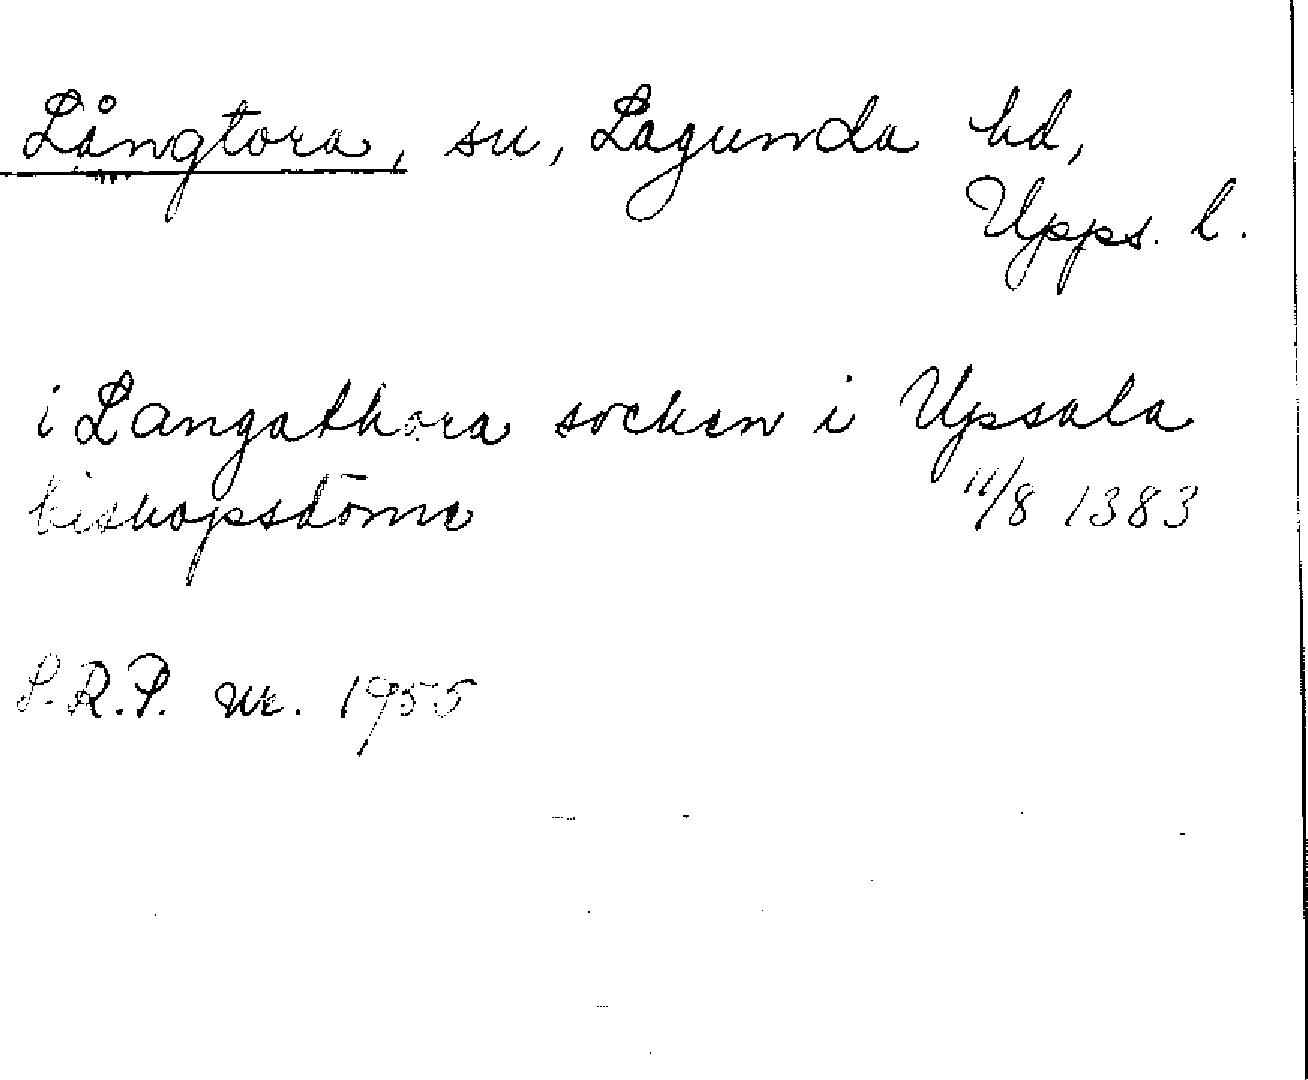 Långtora, sn, Lagunda hd,
Upps. l.
i Langathora socken i Upsala
biskopsdöme 11/8 1383
S.R.P. nr. 1955